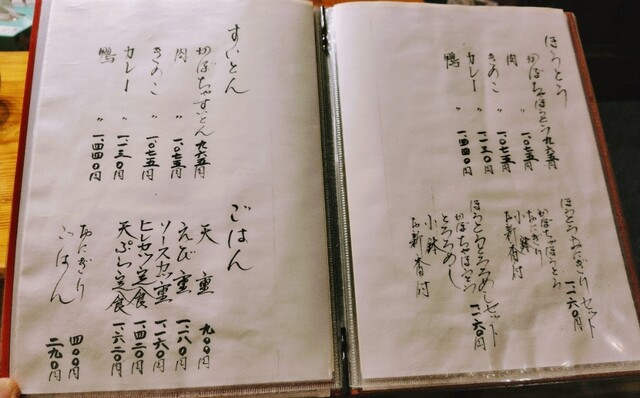 ほうとう
かぼちゃほうとう 九六五円
肉 〃 一、〇七五円
きのこ 〃 一、〇七五円
カレー 〃 一、一三〇円
鴨 〃 一、四四〇円
ほうとうおにぎりセット 一、一六〇円
かぼちゃほうとう
おにぎり
小鉢
お新香付
ほうとうとろろめしセット 一、二六〇円
かぼちゃほうとう
とろろめし
小鉢
お新香付
すいとん
かぼちゃすいとん 九六五円
肉 〃 一、〇七五円
きのこ 〃 一、〇七五円
カレー 〃 一、一三〇円
鴨 〃 一、四四〇円
ごはん
天重 九〇〇円
えび重 一、一八〇円
ソースカツ重 一、二六〇円
ヒレカツ定食 一、四二〇円
天ぷら定食 一、六二〇円
おにぎり 四〇〇円
ごはん 二九〇円